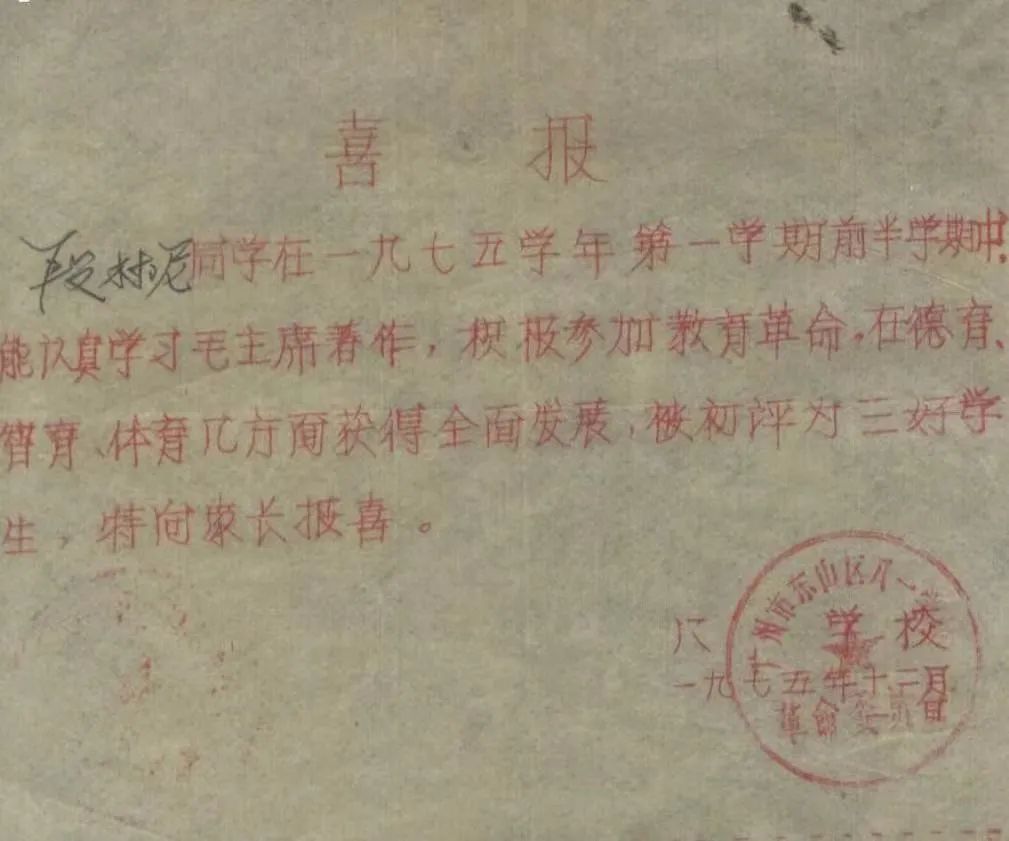 喜报
段林尼同学在一九七五学年第一学期前半学期中，
能认真学习毛主席著作，积极参加教育革命，在德育、
智育、体育几方面获得全面发展，被初评为三好学
生，特向家长报喜。
广州市东山区八一
学校
一九七五年十二月 日
革命委员会